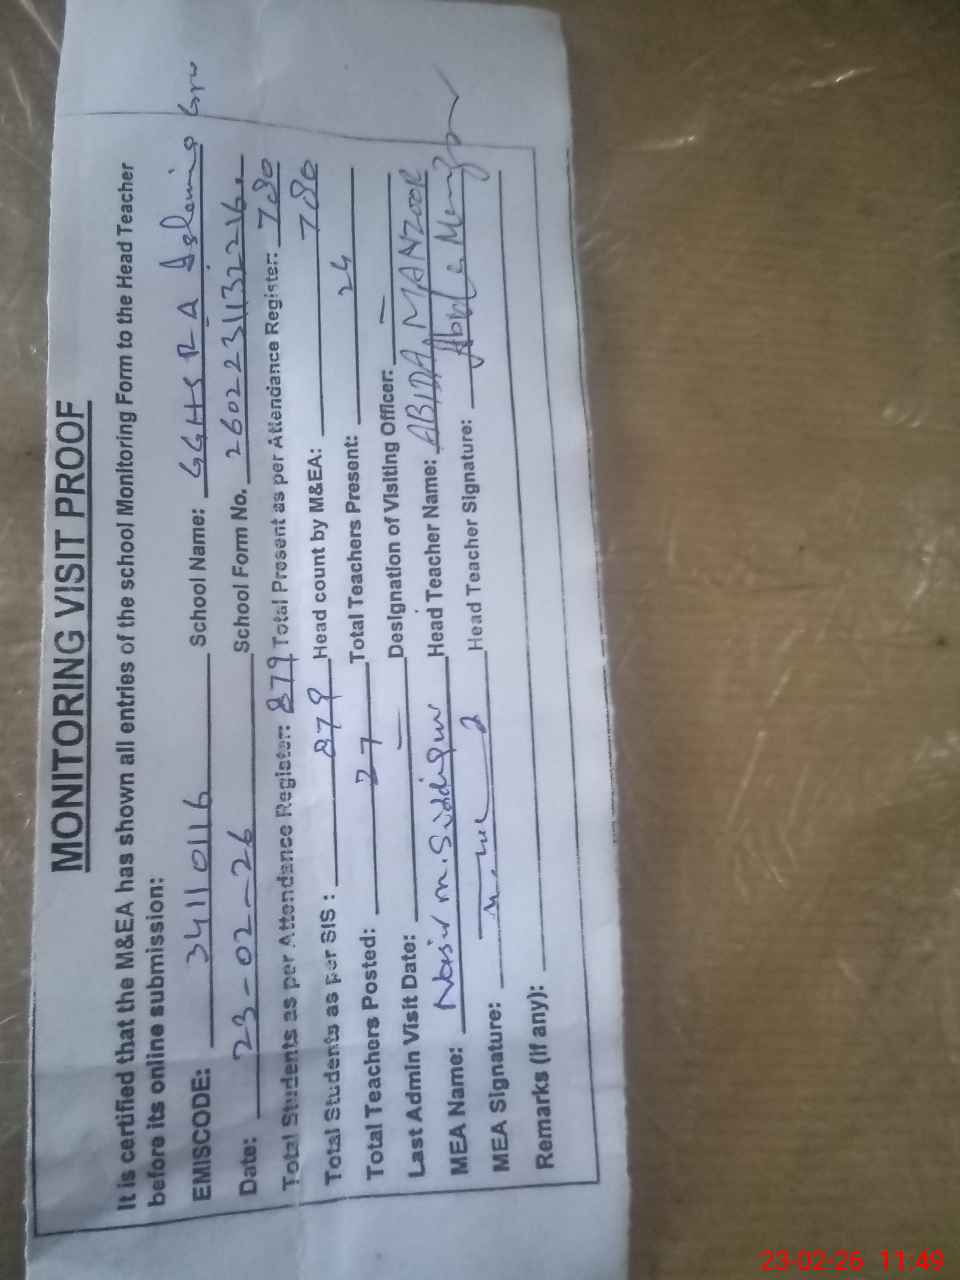 MONITORING VISIT PROOF
It is certified that the M&EA has shown all entries of the school Monitoring Form to the Head Teacher
before its online submission:
EMISCODE: 34110116 School Name: GGHS RA Islamia
Date: 23-02-26 School Form No. 260223113221
Total Students as per Attendance Register: 879 Total Present as per Attendance Register: 780
Total Students as per SIS : 879 Head count by M&EA: 780
Total Teachers Posted: 27 Total Teachers Present: 24
Last Admin Visit Date: — Designation of Visiting Officer: —
MEA Name: M. Siddique Head Teacher Name: ABIDA MANZOOR
MEA Signature: Head Teacher Signature:
Remarks (if any):
23-02-26 11:49